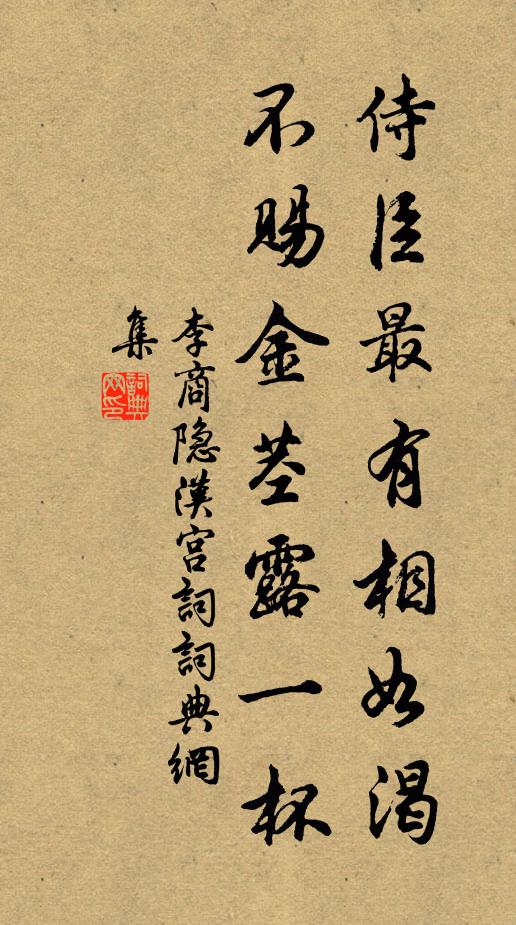 侍臣最有相如渴
不賜金莖露一杯
李商隐漢宮詞詞典網
集
詞典網印